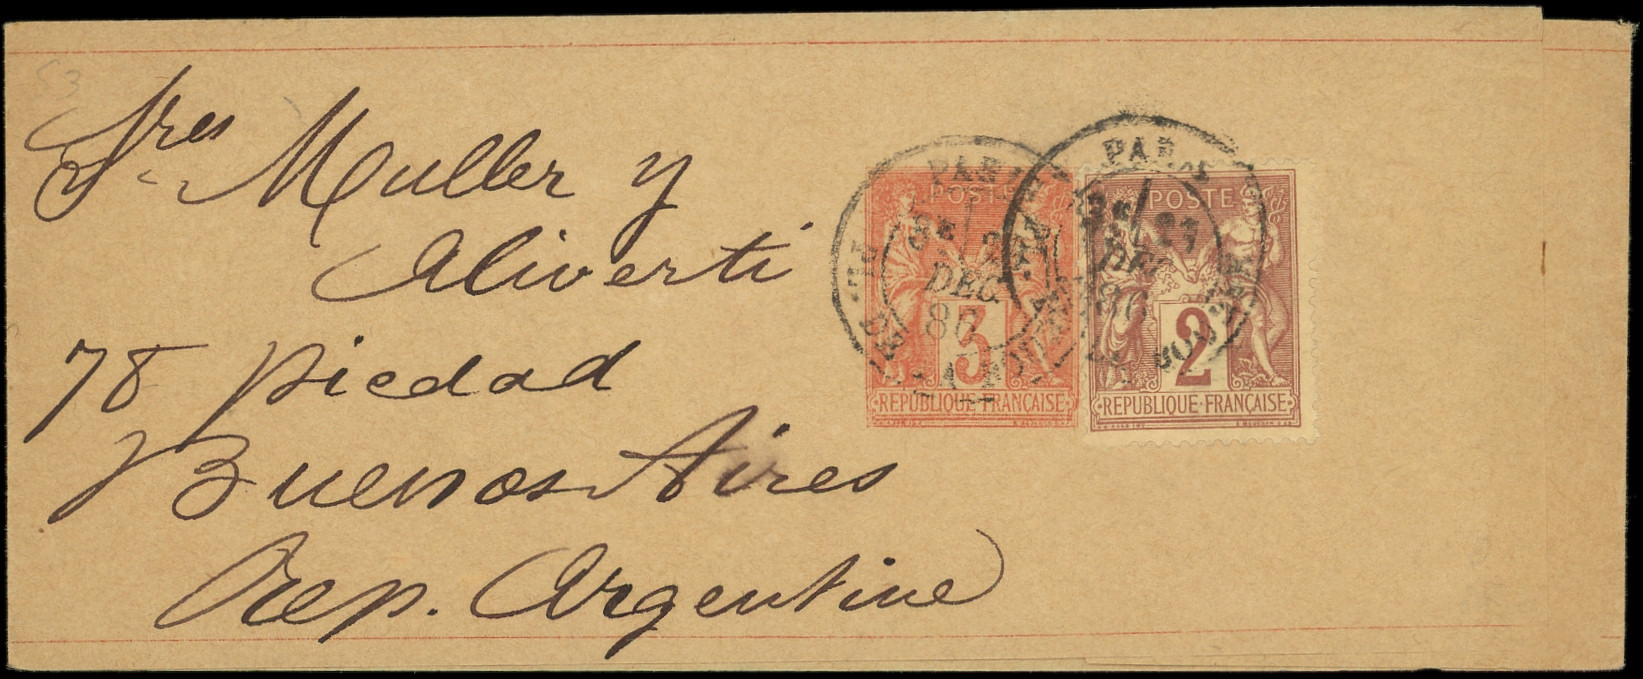 53
Sres Muller y
Aliverti
78 piedad
Buenos Aires
Rep. Argentine
POSTE
3
REPUBLIQUE FRANÇAISE
POSTE
2
REPUBLIQUE FRANÇAISE
PARIS
DEC
86
PARIS
DEC
86